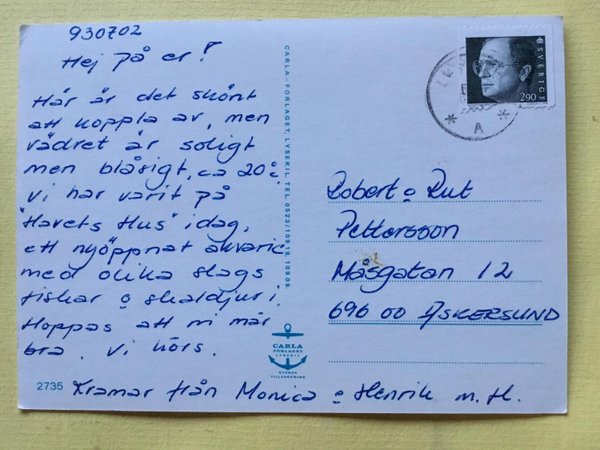 930702
Hej på er!
Här är det skönt
att koppla av, men
vädret är soligt
men blåsigt, ca 20°c
Vi har varit på
"Havets Hus" idag,
ett nyöppnat akvarie
med olika slags
fiskar o skaldjur i.
Hoppas att ni mår
bra. Vi hörs.
Kramar från Monica o Henrik m. fl.
2735
CARLA-FÖRLAGET, LYSEKIL. TEL 0523/10919, 10909.
CARLA
FÖRLAGET
LYSEKIL
SVENSK
TILLVERKNING
SVERIGE
290
A
Robert o Rut
Pettersson
Måsgatan 12
696 00 ASKERSUND